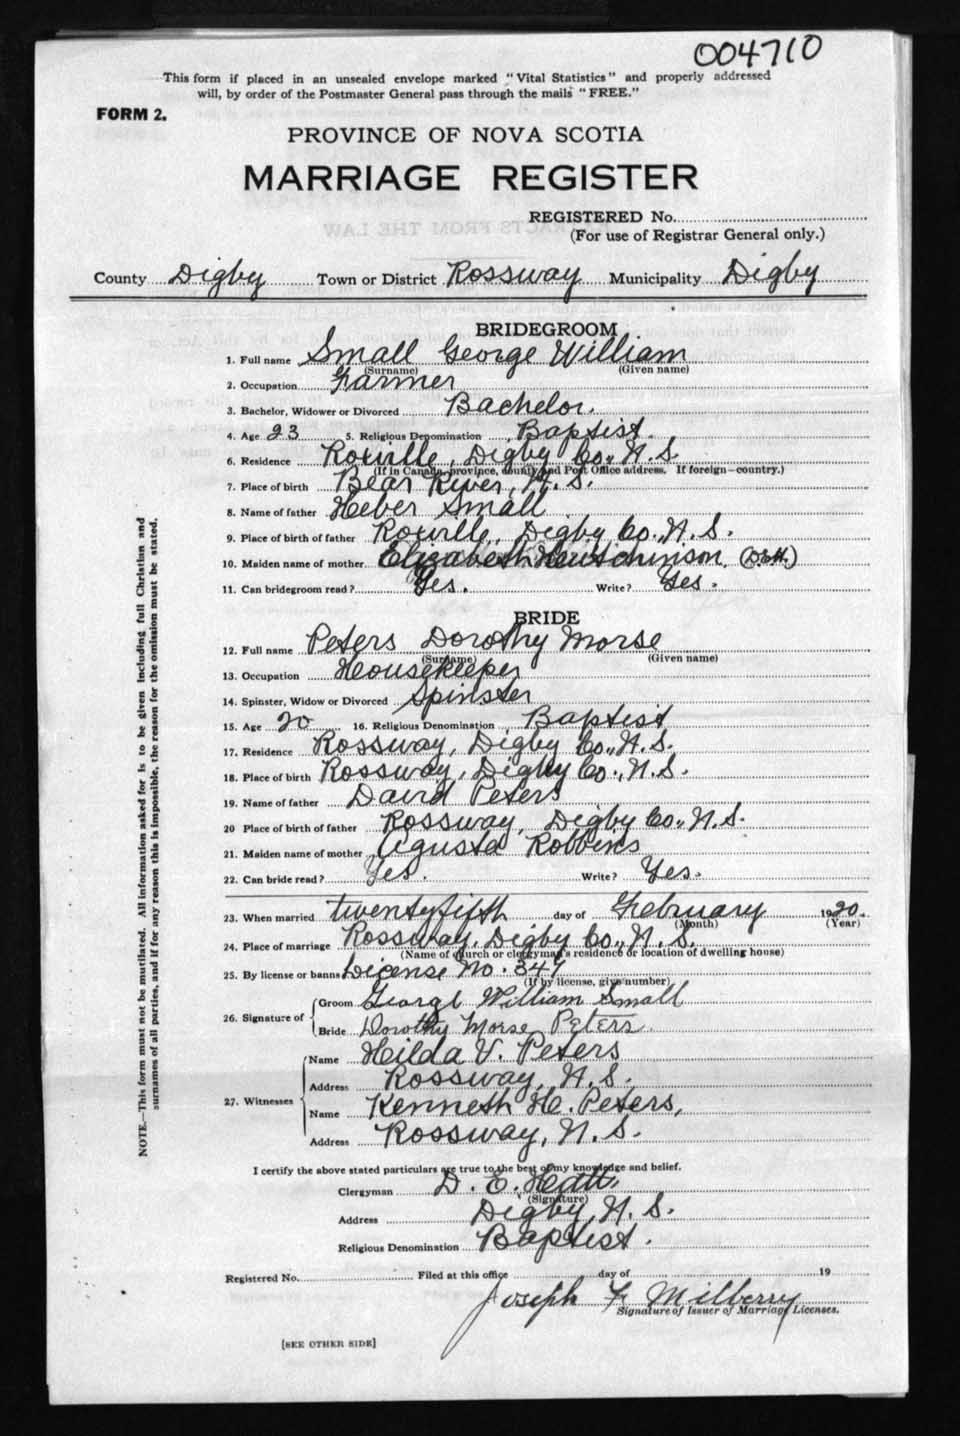 004710
This form if placed in an unsealed envelope marked "Vital Statistics" and properly addressed
will, by order of the Postmaster General pass through the mails "FREE."
FORM 2.
PROVINCE OF NOVA SCOTIA
MARRIAGE REGISTER
REGISTERED No.
(For use of Registrar General only.)
County Digby Town or District Rossway Municipality Digby
BRIDEGROOM
1. Full name Small George William
(Surname) (Given name)
2. Occupation Farmer
3. Bachelor, Widower or Divorced Bachelor.
4. Age 23 5. Religious Denomination Baptist.
6. Residence Roxville, Digby Co., N.S.
(If in Canada, province, county and Post Office address. If foreign—country.)
7. Place of birth Bear River, N.S.
8. Name of father Heber Small
9. Place of birth of father Roxville, Digby Co., N.S.
10. Maiden name of mother Elizabeth Hewtchinson
11. Can bridegroom read? Yes. Write? Yes.
BRIDE
12. Full name Peters Dorothy Morse
(Surname) (Given name)
13. Occupation Housekeeper
14. Spinster, Widow or Divorced Spinster
15. Age 20 16. Religious Denomination Baptist
17. Residence Rossway, Digby Co., N.S.
18. Place of birth Rossway, Digby Co., N.S.
19. Name of father David Peters
20 Place of birth of father Rossway, Digby Co., N.S.
21. Maiden name of mother Agusta Robbins
22. Can bride read? Yes. Write? Yes.
23. When married twentyfifth day of February 1920.
(Month) (Year)
24. Place of marriage Rossway, Digby Co., N.S.
(Name of church or clergyman's residence or location of dwelling house)
25. By license or banns License No. 347
(If by license, give number)
26. Signature of
Groom George William Small
Bride Dorothy Morse Peters
27. Witnesses
Name Hilda V. Peters
Address Rossway, N.S.
Name Kenneth H. Peters,
Address Rossway, N.S.
I certify the above stated particulars are true to the best of my knowledge and belief.
Clergyman D. E. Hatt.
(Signature)
Address Digby, N.S.
Religious Denomination Baptist.
Registered No. Filed at this office day of 19
Joseph F Milberry
Signature of Issuer of Marriage Licenses.
[SEE OTHER SIDE]
NOTE.—This form must not be mutilated. All information asked for is to be given including full Christian and
surnames of all parties, and if for any reason this is impossible, the reason for the omission must be stated.